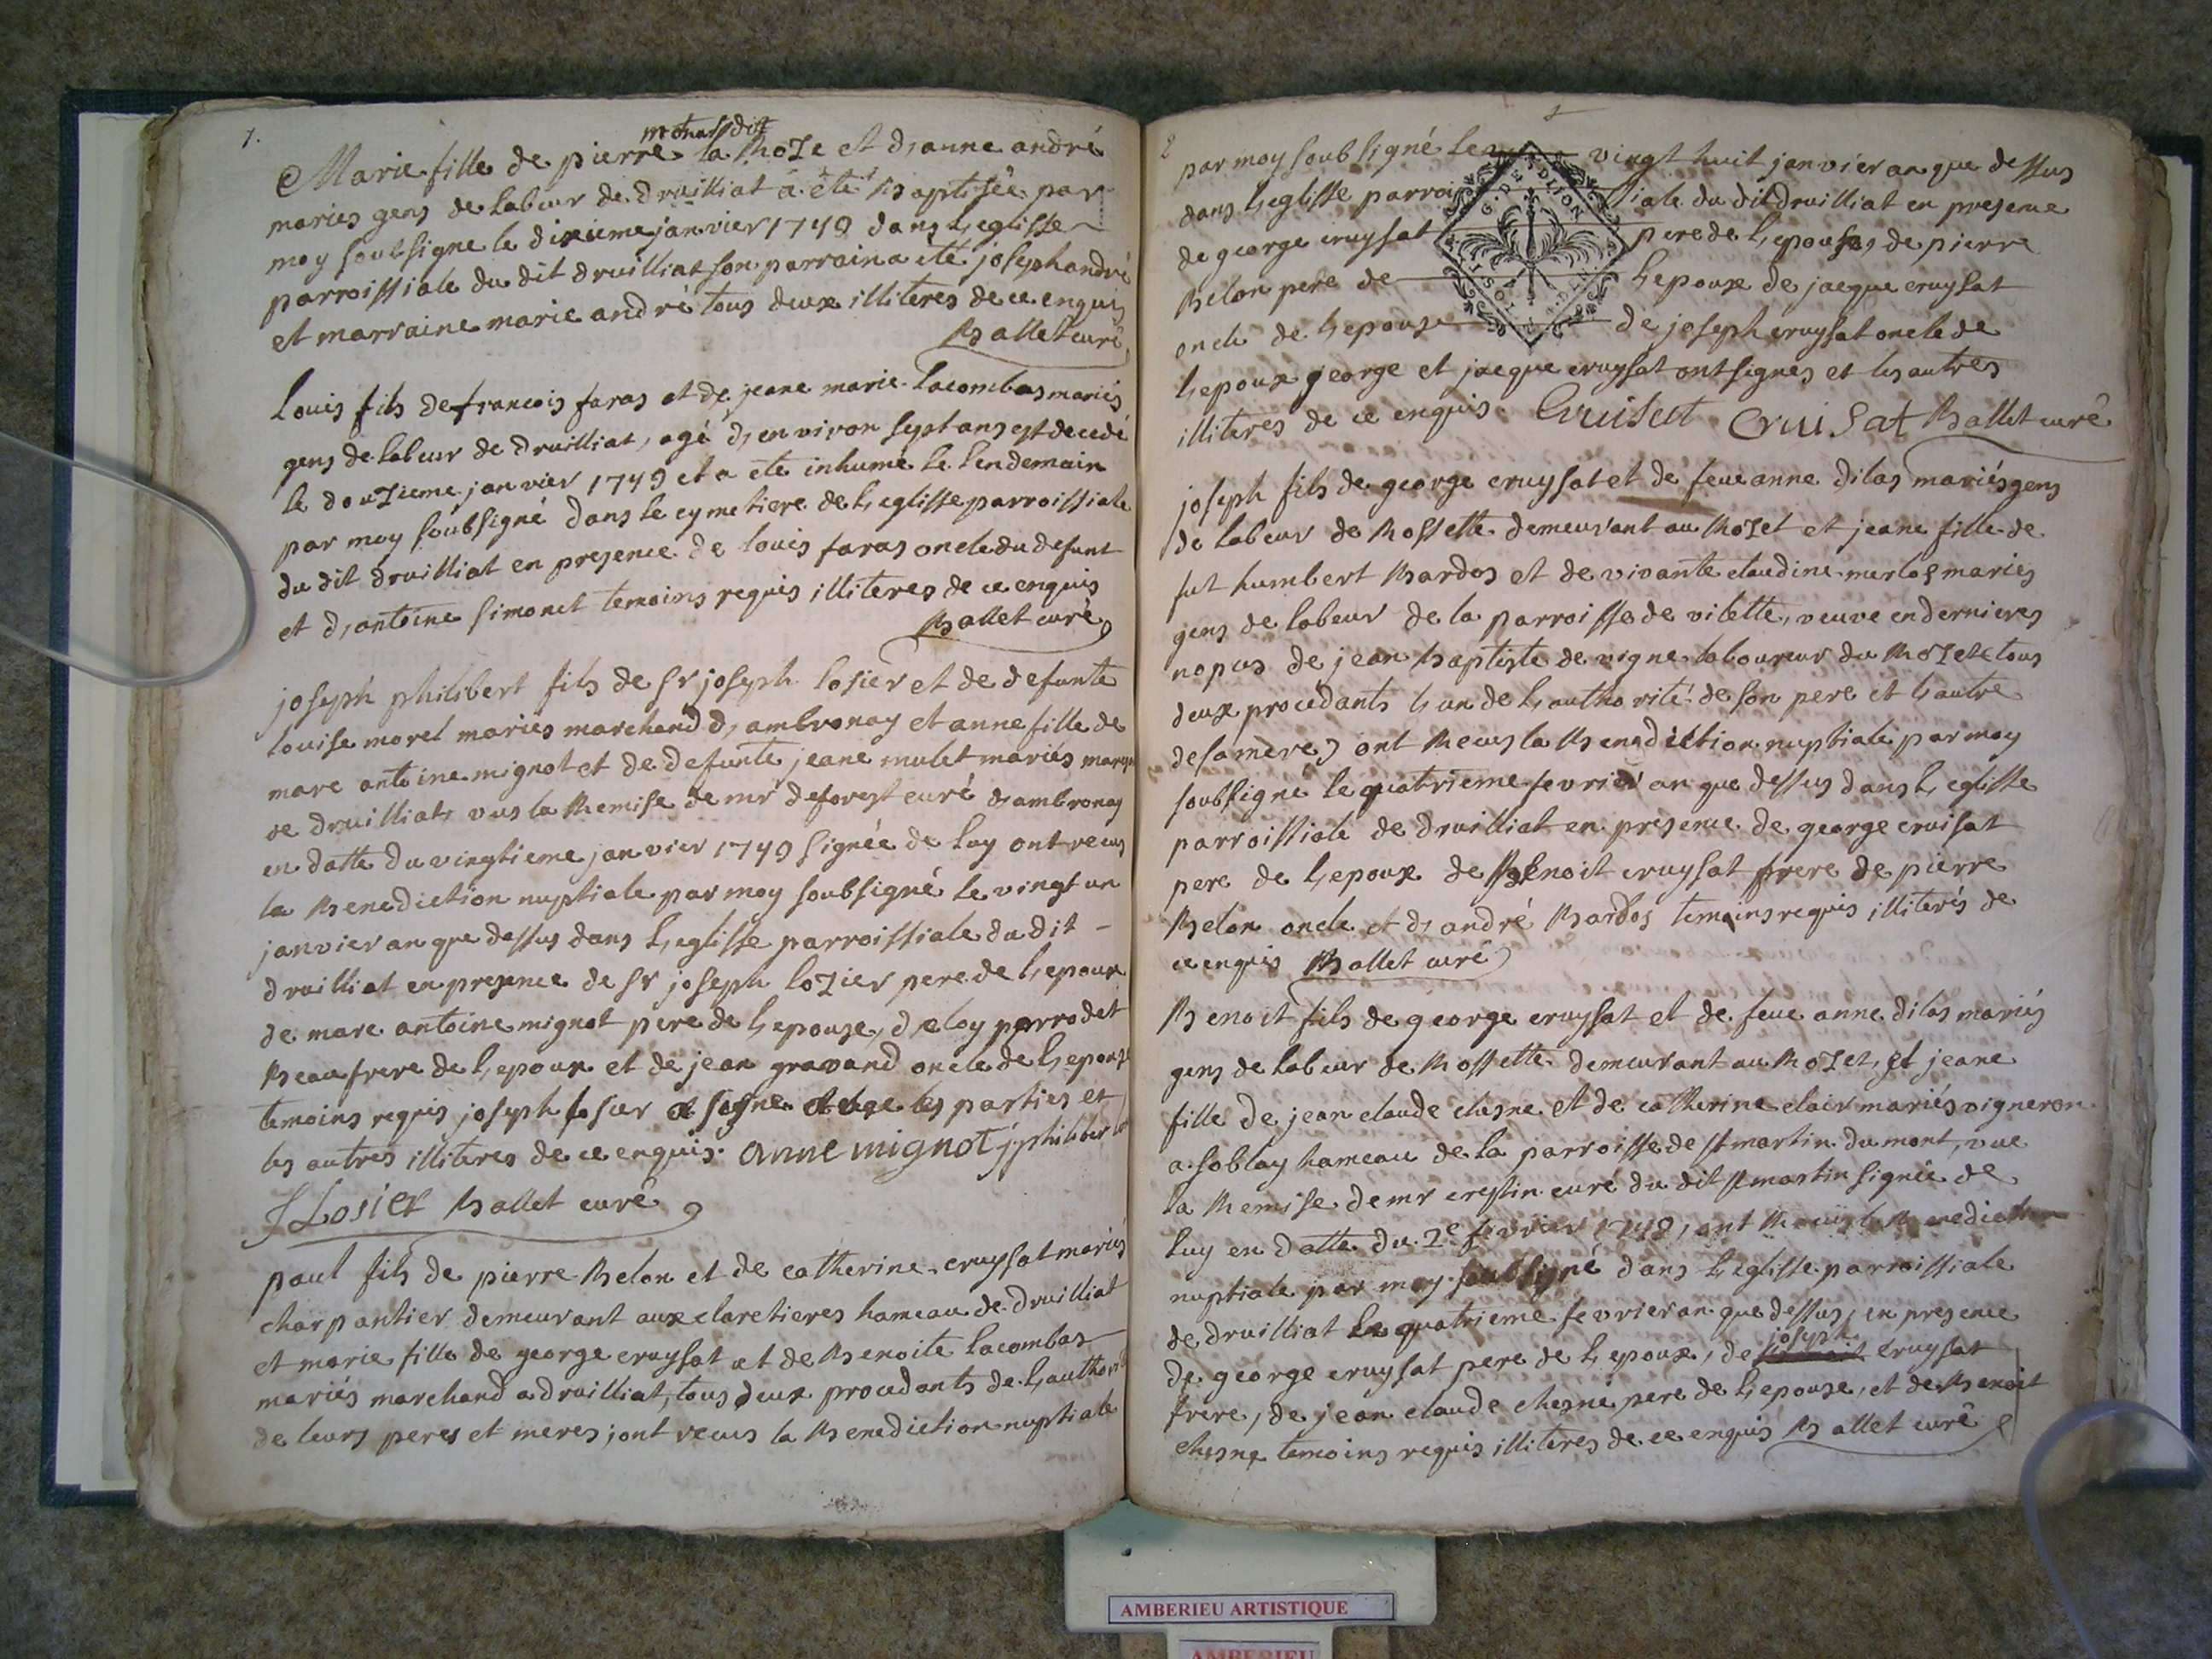 1.
Marie fille de pierre la Roze et d,anne andré
mariés gens de labeur de druilliat à été Baptisée par
moy soubsigné le dixieme janvier 1749 dans L,eglisse
parroissiale du dit druilliat son parrain a été joseph andré
et marraine marie andré tous deux illiteres de ce enquis
Ballet curé
Louis fils de francois faras et de jeane marie lacombas mariés
gens de labeur de druilliat, agé d,environ sept ans est decedé
le douzieme janvier 1749 et a eté inhumé le lendemain
par moy soubsigné dans le cymetiere de L,eglisse parroissiale
du dit druilliat en presence de louis faras oncle du defunt
et d,antoine simonet temoins requis illiteres de ce enquis
Ballet curé
joseph philibert fils de sr joseph losier et de defunte
louise morel mariés marchand d,ambronay et anne fille de
marc antoine mignot et de defunte jeane mulet mariés
de druilliat, vus la Remise de mr deforest curé d,ambronay
en datte du vingtieme janvier 1749 signée de luy ont recus
la Benediction nuptiale par moy soubsigné le vingt un
janvier an que dessus dans L,eglisse parroissiale du dit
druilliat en presence de sr joseph lozier pere de L,epoux
de marc antoine mignot pere de L,epouse, d,eloy perrodet
Beaufrere de L,epoux et de jean gravand oncle de L,epouse
temoins requis joseph losier a signé les parties et
les autres illiteres de ce enquis. anne mignot j philibert
J Losier Ballet curé
paul fils de pierre Belon et de catherine cruysat mariés
charpantier demeurant aux claretieres hameau de druilliat
et marie fille de george cruysat et de Benoite lacombas
mariés marchand a druilliat, tous deux procedants de L,authorité
de leurs peres et meres, ont recus la Benediction nuptiale
2
par moy soubsigné le vingt huit janvier an que dessus
dans L,eglisse parroissiale du dit druilliat en presence
de george cruysat pere de L,epouse, de pierre
Belon pere de L,epoux de jacque cruysat
oncle de L,epouse de joseph cruysat oncle de
L,epoux george et jacque cruysat ont signés et les autres
illiteres de ce enquis. Cruisat Cruisat Ballet curé
G. DE DIJON
joseph fils de george cruysat et de feue anne dilas mariés gens
de labeur de Rossette demeurant au Rozet et jeane fille de
fut humbert Bardos et de vivante claudine merlos mariés
gens de labeur de la parroisse de vilette, veuve en dernieres
nopces de jean Baptiste de vigne laboureur du Rozet tous
deux procedants L,un de L,authorité de son pere et L,autre
de sa mere) ont Recus la Benediction nuptiale par moy
soubsigné le quatrieme fevrier an que dessus dans L,eglisse
parroissiale de druilliat en presence de george cruisat
pere de L,epoux de Benoit cruysat frere de pierre
Belon oncle et d,andré Bardos temoins requis illiterés de
ce enquis Ballet curé
Benoit fils de george cruysat et de feue anne dilas mariés
gens de labeur de Rossette demeurant au Rozet, et jeane
fille de jean claude chesne et de catherine clair mariés vigneron
a soblay hameau de la parroisse de st martin du mont, vue
la Remise de mr crestin curé du dit st martin signée de
luy en datte du 2e fevrier 1749, ont Recus la Benediction
nuptiale par moy soubsigné dans L,eglisse parroissiale
de druilliat le quatrieme fevrier an que dessus, en presence
de george cruysat pere de L,epoux, de joseph cruysat
frere, de jean claude chesne pere de L,epouse, et de Benoit
chesne temoins requis illiteres de ce enquis Ballet curé
AMBERIEU ARTISTIQUE
AMBERIEU